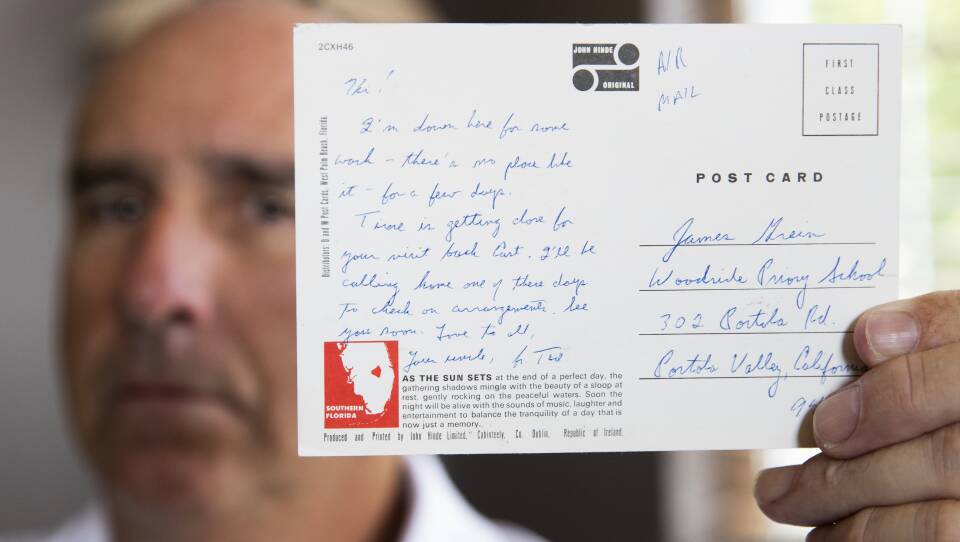 2CXH46
JOHN HINDE
ORIGINAL
AIR
MAIL
FIRST
CLASS
POSTAGE
Hi!
I'm down here for some
work - there's no place like
it - for a few days.
Time is getting close for
your visit back East. I'll be
calling home one of these days
to check on arrangements. See
you soon. Love to all,
Your uncle, Fr. Ted
Distributors: D and M Post Cards, West Palm Beach, Florida.
POST CARD
James Grein
Woodside Priory School
302 Portola Rd.
Portola Valley, California
94
SOUTHERN
FLORIDA
AS THE SUN SETS at the end of a perfect day, the
gathering shadows mingle with the beauty of a sloop at
rest, gently rocking on the peaceful waters. Soon the
night will be alive with the sounds of music, laughter and
entertainment to balance the tranquility of a day that is
now just a memory.
Produced and Printed by John Hinde Limited," Cabinteely, Co. Dublin, Republic of Ireland.